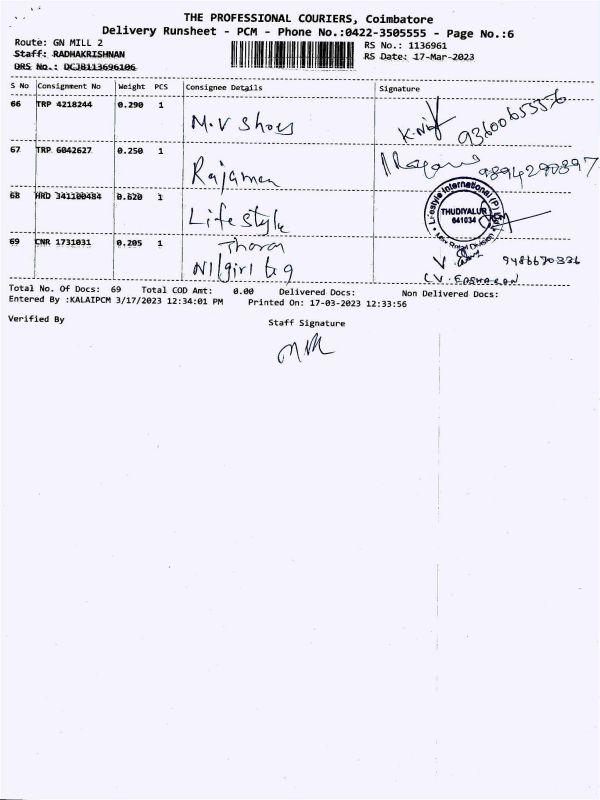 THE PROFESSIONAL COURIERS, Coimbatore
Delivery Runsheet - PCM - Phone No.:0422-3505555 - Page No.:6
Route: GN MILL 2
RS No.: 1136961
Staff: RADHAKRISHNAN
RS Date: 17-Mar-2023
DRS No.: DCJB113696106
S No Consignment No Weight PCS Consignee Details Signature
66 TRP 4218244 0.290 1 M.V Shoes
67 TRP 6042627 0.250 1 Rajaman 9894290897
68 HRD 341100484 0.620 1 Life style
Lifestyle International (P) THUDIYALUR 641034
69 CNR 1731031 0.205 1 Tharan
Nilgiri
Total No. Of Docs: 69 Total COD Amt: 0.00 Delivered Docs: Non Delivered Docs:
Entered By :KALAIPCM 3/17/2023 12:34:01 PM Printed On: 17-03-2023 12:33:56
Verified By
Staff Signature